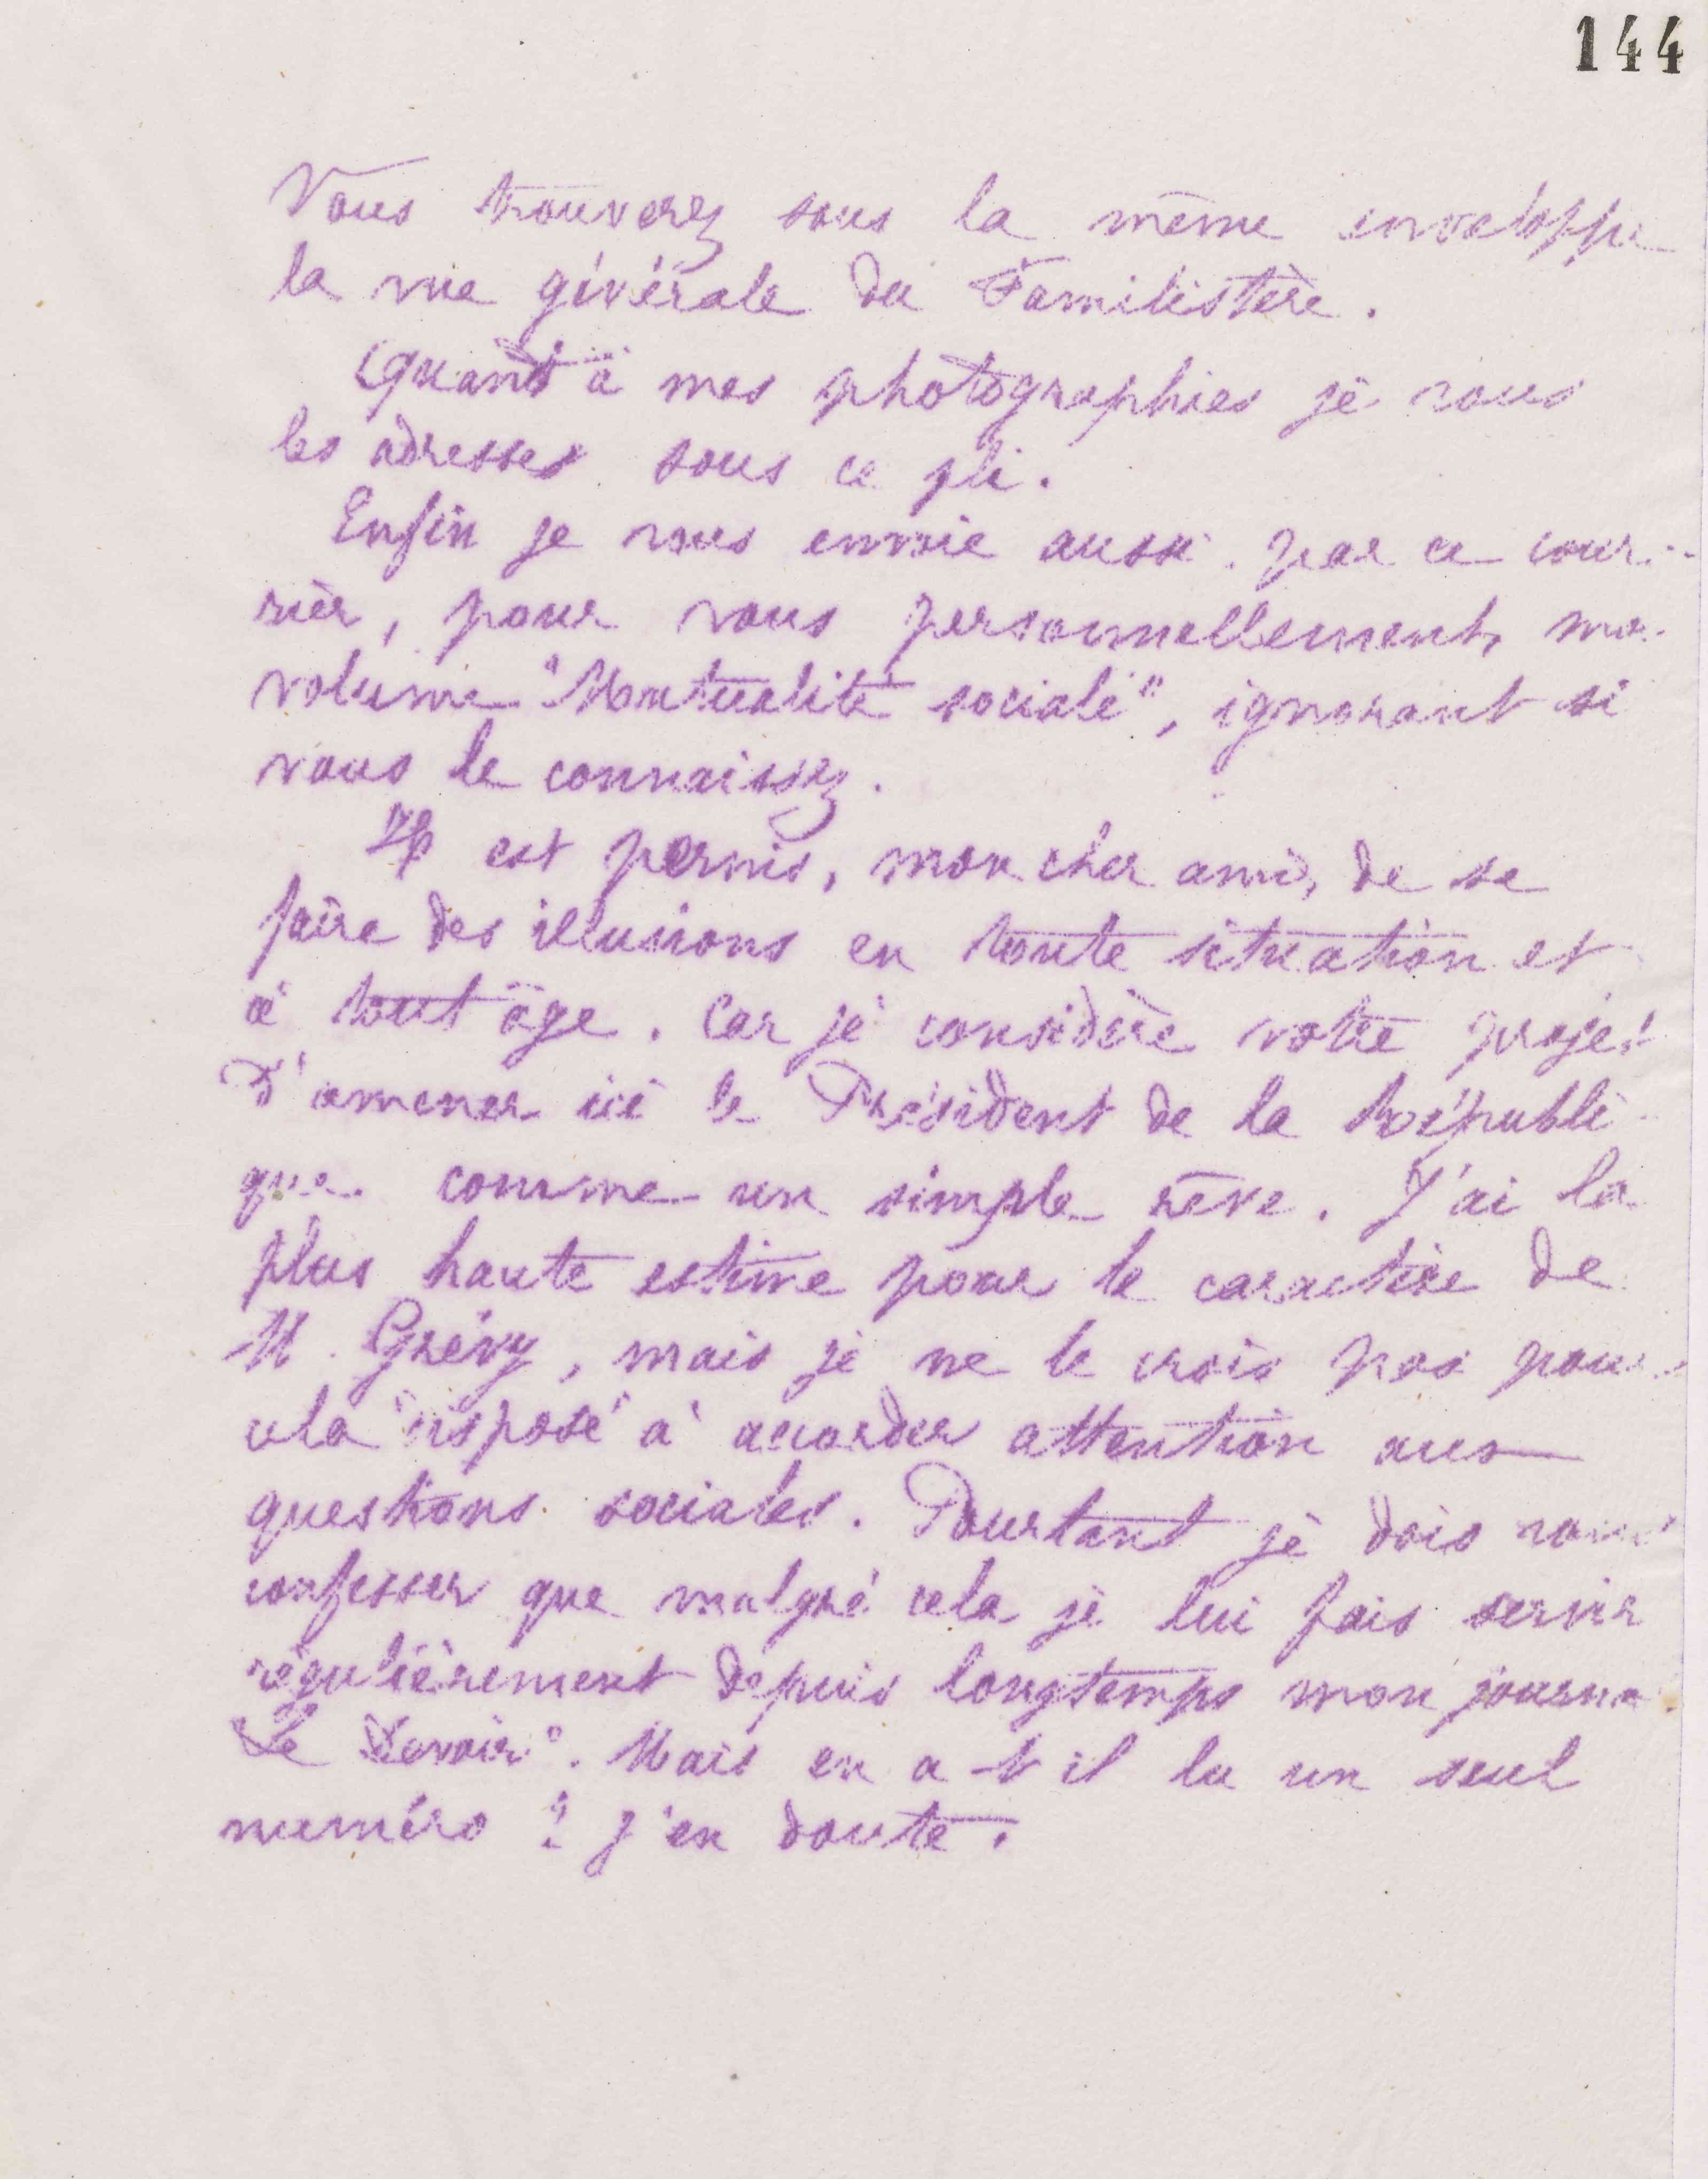 144
Vous trouverez sous la même enveloppe
la vue générale du Familistère.
Quant à mes photographies je vous
les adresse sous ce pli.
Enfin je vous envoie aussi par ce cour-
rier, pour vous personnellement, mon
volume "Mutualité sociale", ignorant si
vous le connaissez.
Il est permis, mon cher ami, de se
faire des illusions en toute situation et
à tout âge. Car je considère votre projet
d'amener ici le Président de la Républi-
que comme un simple rêve. J'ai la
plus haute estime pour le caractère de
M. Grévy, mais je ne le crois pas pour
cela disposé à accorder attention aux
questions sociales. Pourtant je dois vous
confesser que malgré cela je lui fais servir
régulièrement depuis longtemps mon journal
Le Devoir". Mais en a-t-il lu un seul
numéro ? J'en doute.